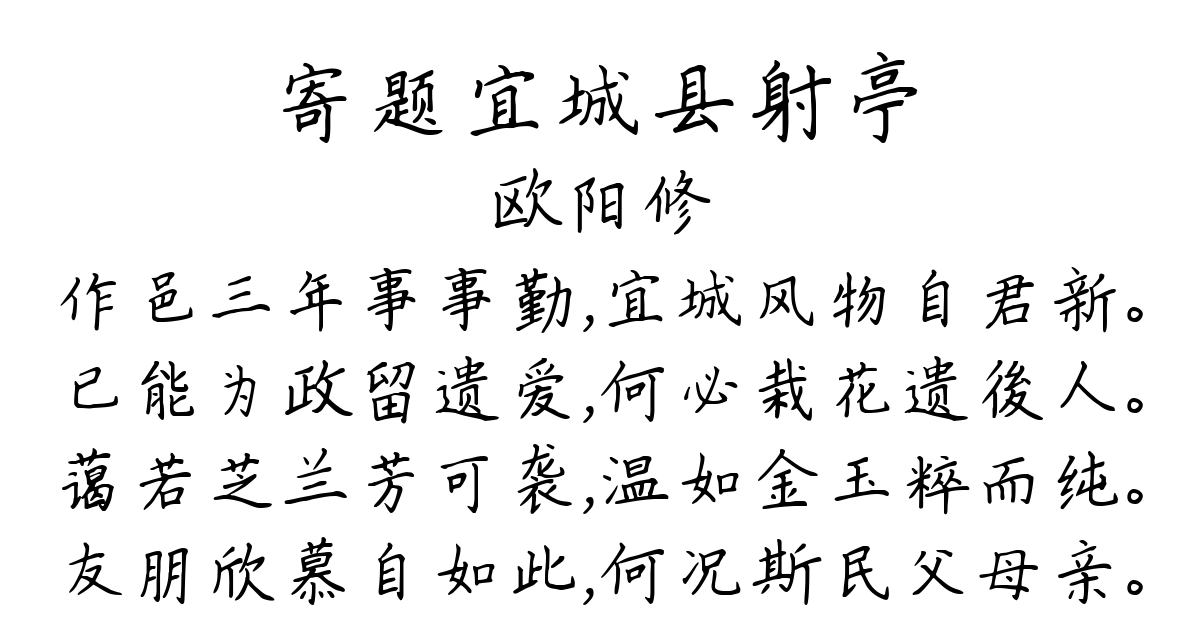 寄题宜城县射亭
欧阳修
作邑三年事事勤,宜城风物自君新。
已能为政留遗爱,何必栽花遗後人。
蔼若芝兰芳可袭,温如金玉粹而纯。
友朋欣慕自如此,何况斯民父母亲。